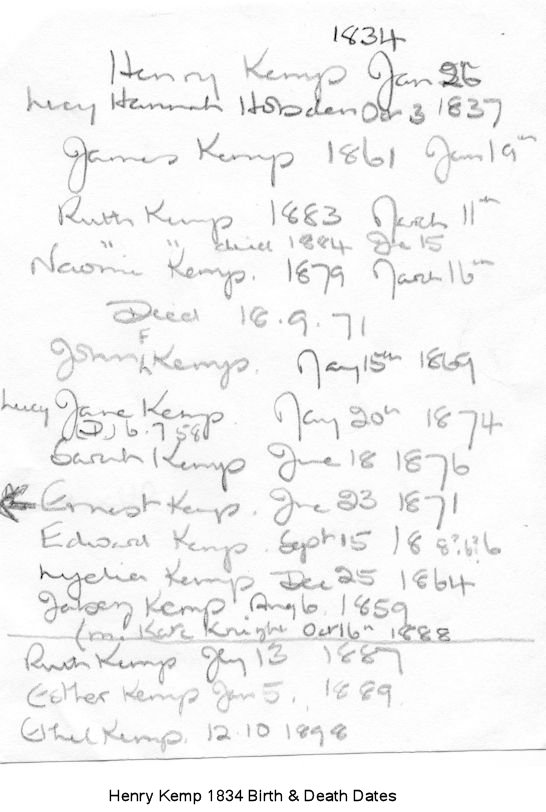 1834
Henry Kemp Jan 26
Lucy Hannah Hobden Oct 3 1837
James Kemp 1861 Jan 19th
Ruth Kemp 1883 March 11th
" " died 1884 Dec 15
Naomi Kemp. 1879 March 16th
Died 18.9.71
John Kemp. May 15th 1869
Lucy Jane Kemp May 20th 1874
(D) 6.7 58
Sarah Kemp June 18 1876
Ernest Kemp. June 23 1871
Edward Kemp. Sept 15 18
Lydia Kemp Dec 25 1864
Jabez Kemp Aug 6 1859
(m. Kate Knight Oct 16th 1888
Ruth Kemp July 13 1887
Esther Kemp Jan 5. 1889
Ethel Kemp. 12.10 1898
Henry Kemp 1834 Birth & Death Dates